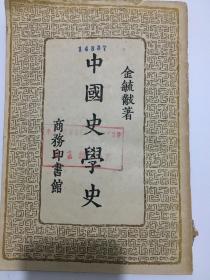 14337
金毓黻著
中國史學史
商務印書館